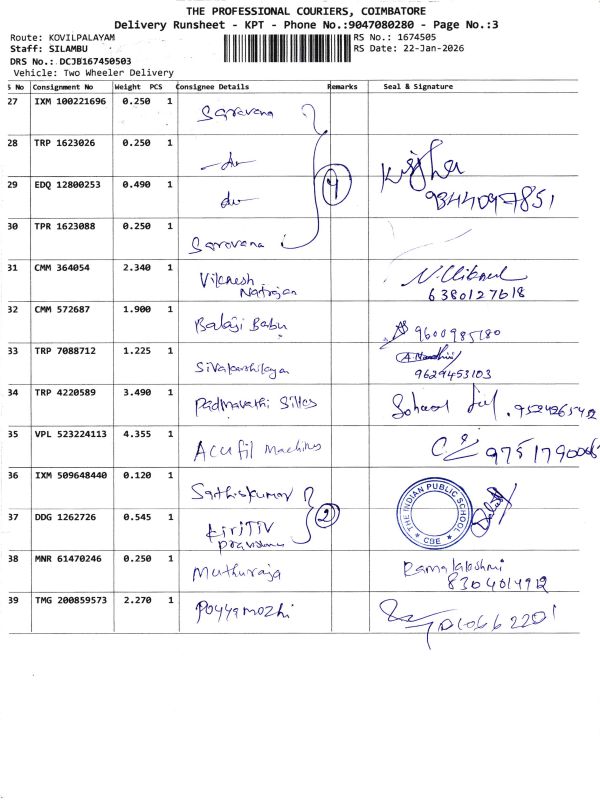 THE PROFESSIONAL COURIERS, COIMBATORE
Delivery Runsheet - KPT - Phone No.:9047080280 - Page No.:3
Route: KOVILPALAYAM
RS No.: 1674505
Staff: SILAMBU
RS Date: 22-Jan-2026
DRS No.: DCJB167450503
Vehicle: Two Wheeler Delivery
S No Consignment No Weight PCS Consignee Details Remarks Seal & Signature
27 IXM 100221696 0.250 1 Saravana
28 TRP 1623026 0.250 1 -do-
29 EDQ 12800253 0.490 1 do 4
9344097851
30 TPR 1623088 0.250 1 Saravana
31 CMM 364054 2.340 1 Viknesh
Natrajan
6380127618
32 CMM 572687 1.900 1 Balaji Babu 9600985780
33 TRP 7088712 1.225 1
9629453103
34 TRP 4220589 3.490 1 Padmavathi Silks
35 VPL 523224113 4.355 1 Accufil Machines
36 IXM 509648440 0.120 1 Sathiskumar
THE INDIAN PUBLIC SCHOOL
CBE
37 DDG 1262726 0.545 1 2
38 MNR 61470246 0.250 1 Muthuraja Ramalakshmi
8304014912
39 TMG 200859573 2.270 1 Poyyamozhi